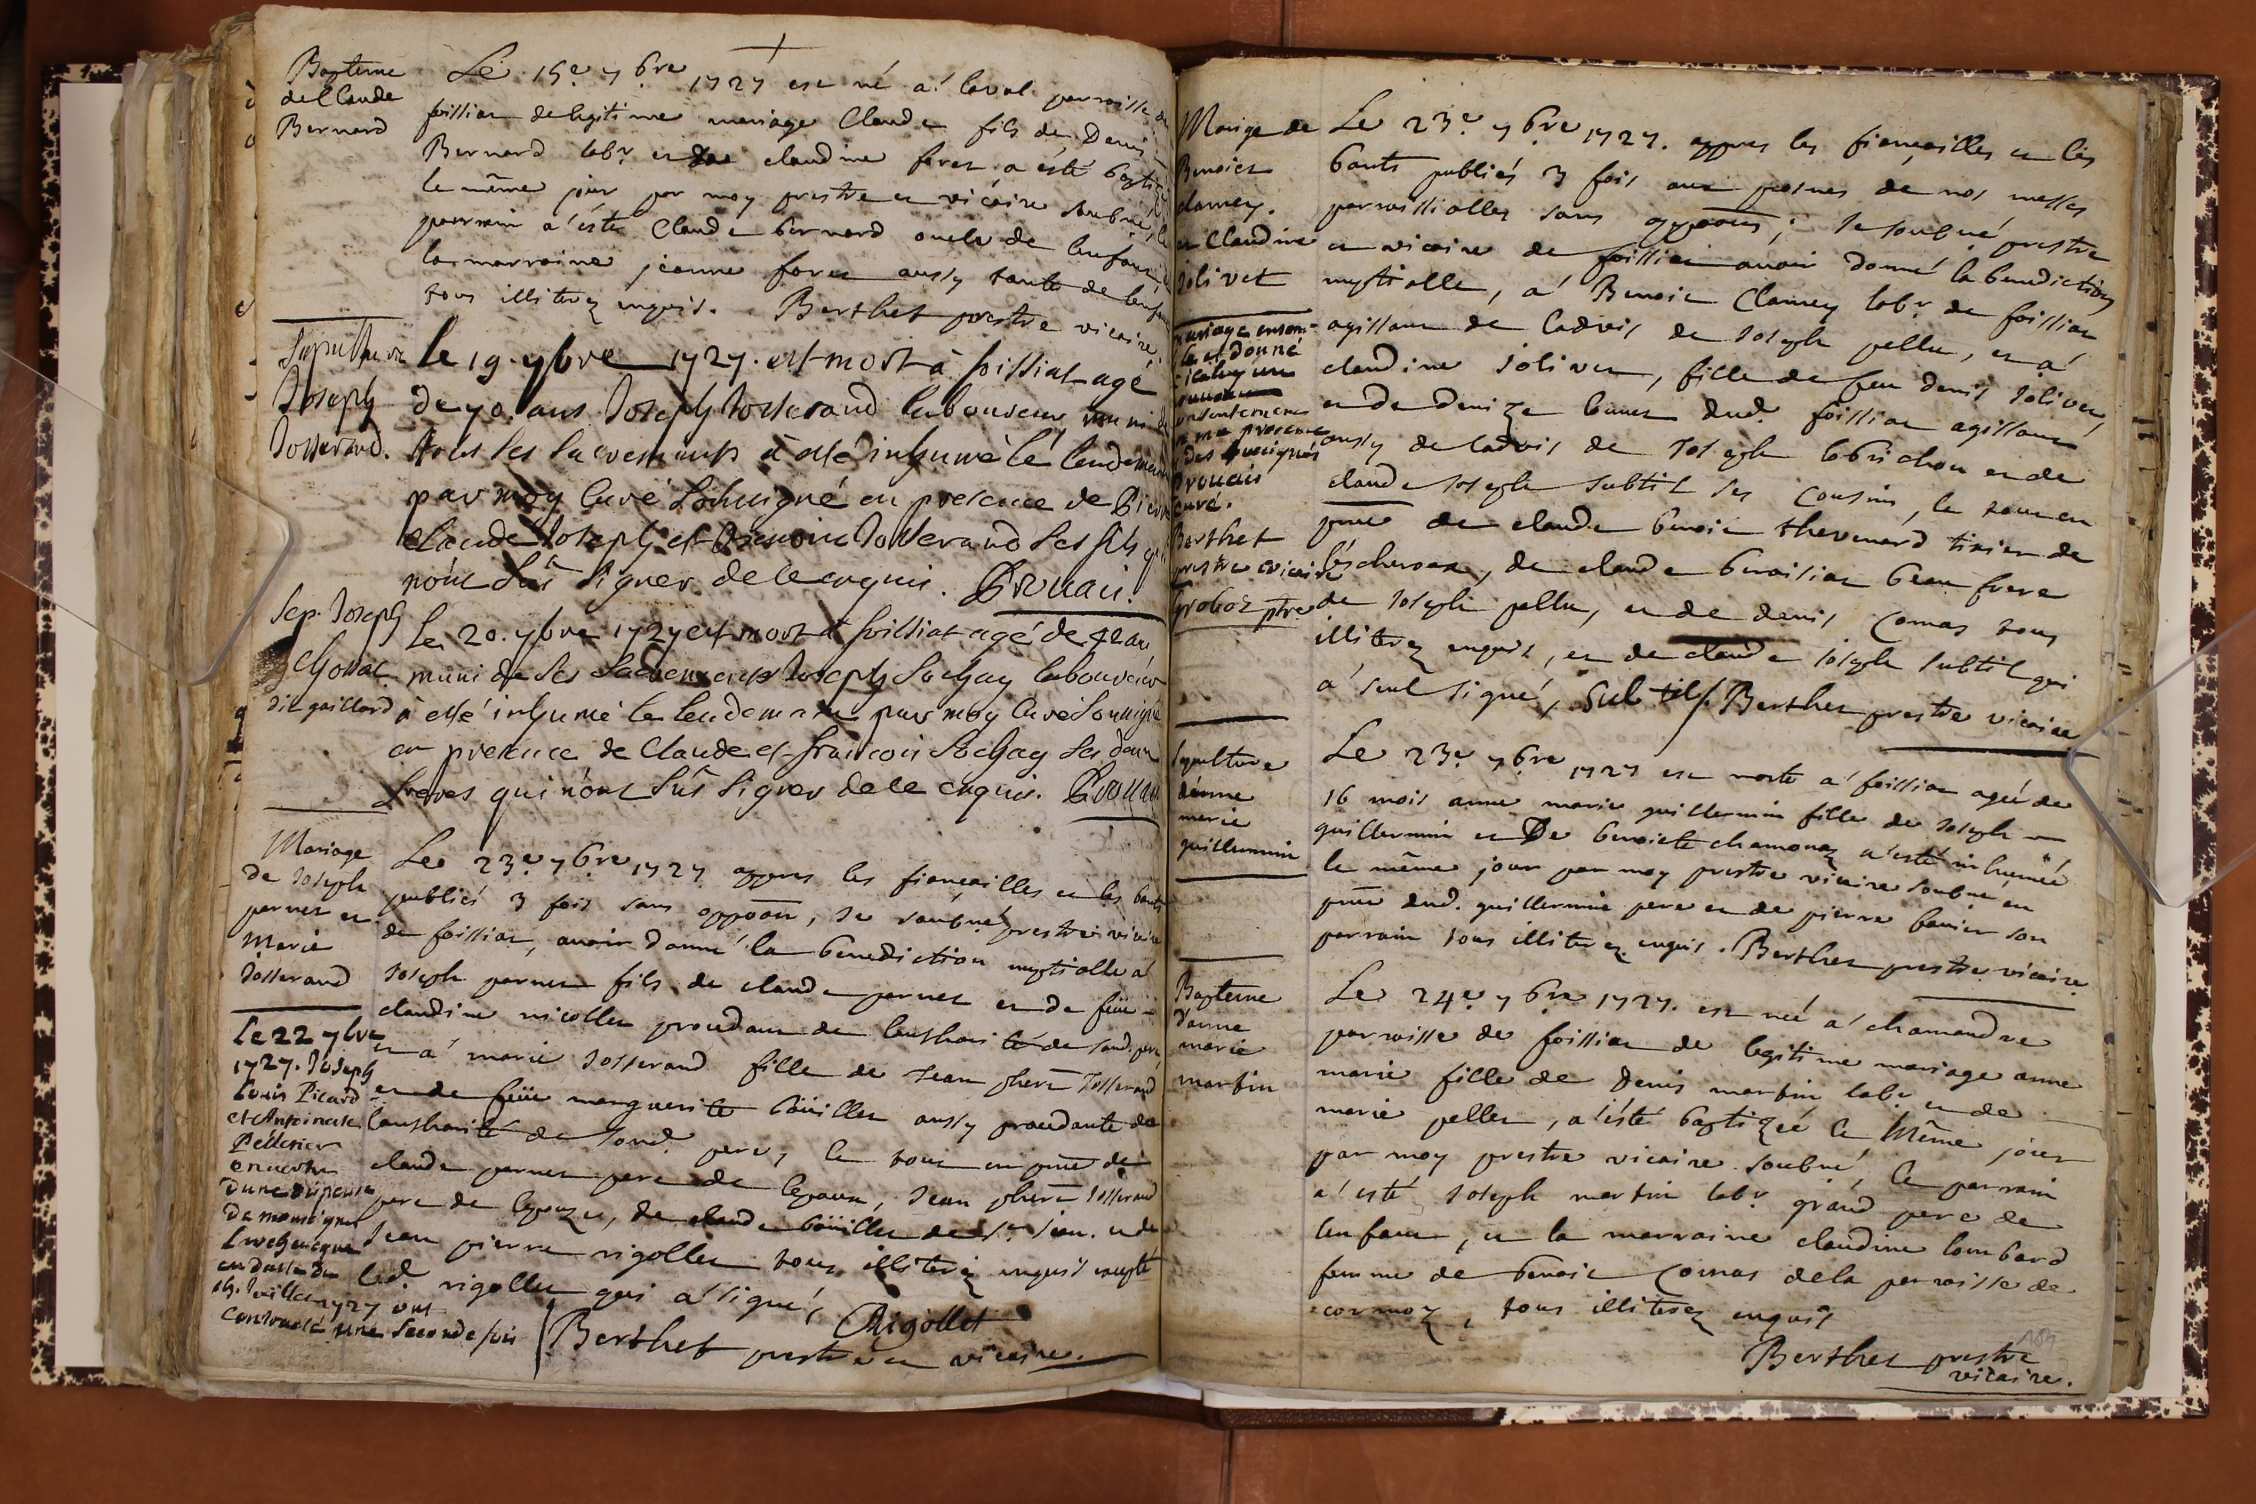 Bapteme
de Claude
Bernard
Le 15e 7bre 1727 est né a' laval parroisse de
foissiat de legitime mariage Claude fils de Denis
Bernard labr et de claudine feret a esté baptizé
le même jour par moy prestre et vicaire soubné, le
parrain a' ésté Claude bernard oncle de lenfant, et
la marraine jeanne foret aussy tante de lenfant
tous illiterez enquis. Berthet prestre vicaire.
Sepulture
Joseph
Josserand.
le 19. 7bre 1727. est mort à foissiat agé
de 70. ans Joseph Josserand laboureur, muni de
tous les sacrements à esté inhumé le lendemain
par moy curé soussigné en presence de Pierre
Claude Joseph et Benoict Josserand ses fils qui
n'ont sûs signer de ce enquis. Brouaci.
Sep. Joseph
Chossat
dit gaillard
Le 20. 7bre 1727 est mort à foissiat agé de 42 an
muni de ses sacrements Joseph Sochay laboureur
à esté inhumé le lendemain par moy curé soussigné
en presence de Claude et francois Sochay ses deux
freres qui n'ont sûs signer de ce enquis.
Mariage
de Joseph
pernet et
Marie
Josserand
Le 23e 7bre 1727 appres les fiancailles et les bants
publiés 3 fois sans oppoon, je soubné prestre vicaire
de foissiat, avoir donné la benediction nuptialle a'
Joseph pernet fils de claude pernet et de feüe
claudine nicollet procedant de lauthorité de sond. pere,
et a' marie Josserand fille de Jean phert Josserand
et de feüe marguerite boüillet aussy procedante de
lauthorité de sond. pere, le tout en pnce de
claude pernet pere de lepoux, Jean phert Josserand
pere de lepouze, de claude boüillet de st Jean. et de
Jean pierre rigollet tous illiterez enquis excepté
led. rigollet qui a' signé, Rigollet
Berthet prestre et vicaire.
Le 22 7bre
1727. Joseph
Louis Picard
et Antoinette
Pelletier
en vertu
dune dispense
de monseigneur
Larchevêque
en datte du
Juillet 1727 ont
contracté une seconde fois
Mariage de
Benoict
clamey.
et Claudine
Jolivet
Le 23e 7bre 1727. appres les fiancailles et les
bants publiés 3 fois aux prosnes de nos messes
parroissialles sans oppoons, je soubné prestre
et vicaire de foissiat avoir donné la benediction
nuptialle, a' Benoit Clamey labr de foissiat
agissant de ladvis de Joseph pellu, et a'
claudine Jolivet, fille de feu denis Jolivet,
et de denize dud. foissiat agissant
aussy de ladvis de Joseph bobrichon et de
claude Joseph subtil ses cousins, le tout en
pnce de claude benoit thevenard tixier de
lescheroux, de claude benoit beau frere
de Joseph pellu, et de denis Comas tous
illiterez enquis, et de claude Joseph subtil qui
a' seul signé, Subtil. Berthet prestre vicaire
mariage
donné
consentement
en ma presence
des soussignés
Brouaci
curé.
Berthet
prestre vicaire
grobot ptre
Sepulture
danne
marie
guillermin
Le 23e 7bre 1727 est morte a' foissiat agée de
16 mois anne marie guillermin fille de Joseph
guillermin et De benoiste chamonaz a' esté inhumée
le même jour par moy prestre vicaire soubné en
pnce dud. guillermin pere et de pierre banier son
parrain tous illiterez enquis. Berthet prestre vicaire.
Bapteme
danne
marie
martin
Le 24e 7bre 1727. est neé a' chamandre
parroisse de foissiat de legitime mariage anne
marie fille de Denis martin labr et de
marie pellet, a' ésté baptizée le Même jour
par moy prestre vicaire soubné, le parrain
a' esté Joseph martin labr grand pere de
lenfant, et la marraine claudine lombard
femme de benoit Comas de la parroisse de
cormoz, tous illiterez enquis
Berthet prestre
vicaire.